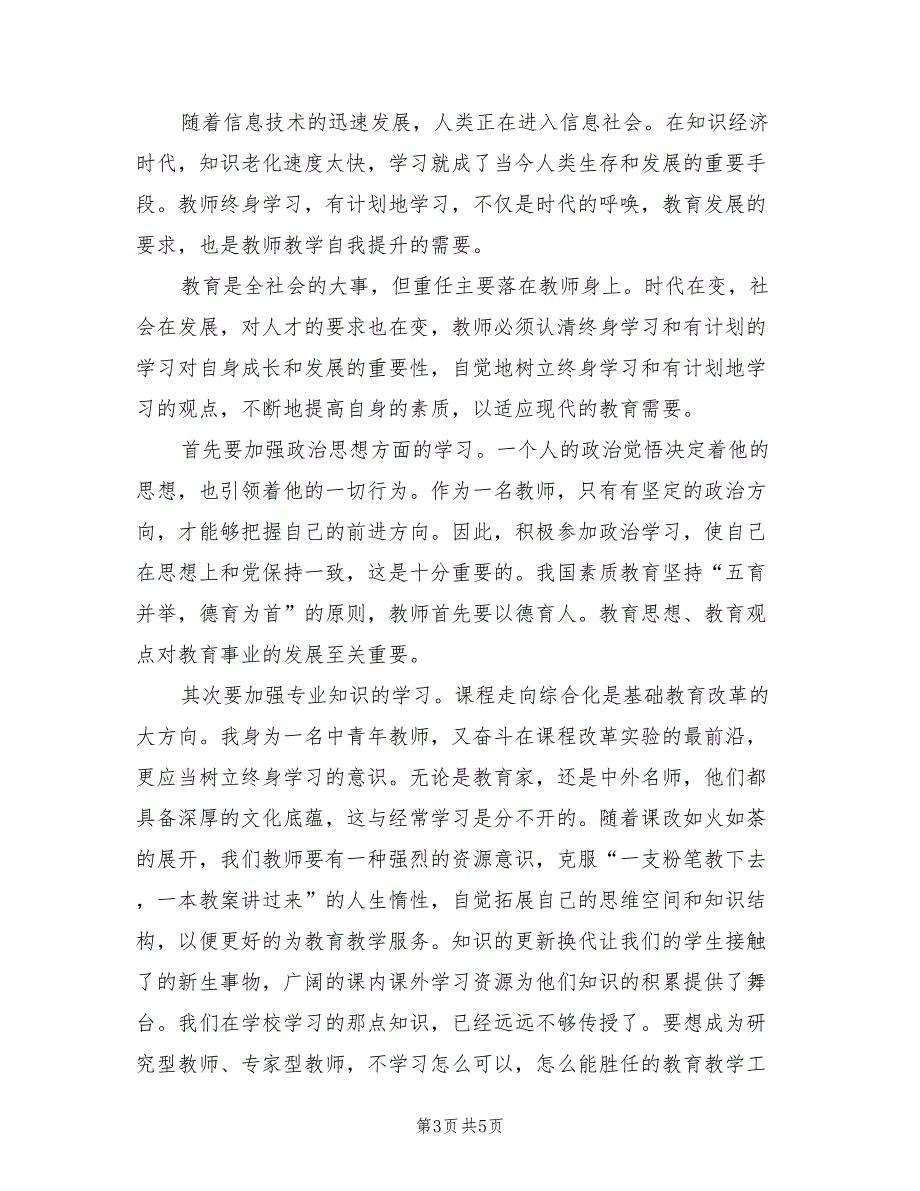 随着信息技术的迅速发展，人类正在进入信息社会。在知识经济
时代，知识老化速度太快，学习就成了当今人类生存和发展的重要手
段。教师终身学习，有计划地学习，不仅是时代的呼唤，教育发展的
要求，也是教师教学自我提升的需要。
教育是全社会的大事，但重任主要落在教师身上。时代在变，社
会在发展，对人才的要求也在变，教师必须认清终身学习和有计划的
学习对自身成长和发展的重要性，自觉地树立终身学习和有计划地学
习的观点，不断地提高自身的素质，以适应现代的教育需要。
首先要加强政治思想方面的学习。一个人的政治觉悟决定着他的
思想，也引领着他的一切行为。作为一名教师，只有有坚定的政治方
向，才能够把握自己的前进方向。因此，积极参加政治学习，使自己
在思想上和党保持一致，这是十分重要的。我国素质教育坚持“五育
并举，德育为首”的原则，教师首先要以德育人。教育思想、教育观
点对教育事业的发展至关重要。
其次要加强专业知识的学习。课程走向综合化是基础教育改革的
大方向。我身为一名中青年教师，又奋斗在课程改革实验的最前沿，
更应当树立终身学习的意识。无论是教育家，还是中外名师，他们都
具备深厚的文化底蕴，这与经常学习是分不开的。随着课改如火如荼
的展开，我们教师要有一种强烈的资源意识，克服“一支粉笔教下去
，一本教案讲过来”的人生惰性，自觉拓展自己的思维空间和知识结
构，以便更好的为教育教学服务。知识的更新换代让我们的学生接触
了的新生事物，广阔的课内课外学习资源为他们知识的积累提供了舞
台。我们在学校学习的那点知识，已经远远不够传授了。要想成为研
究型教师、专家型教师，不学习怎么可以，怎么能胜任的教育教学工
第3页共5页